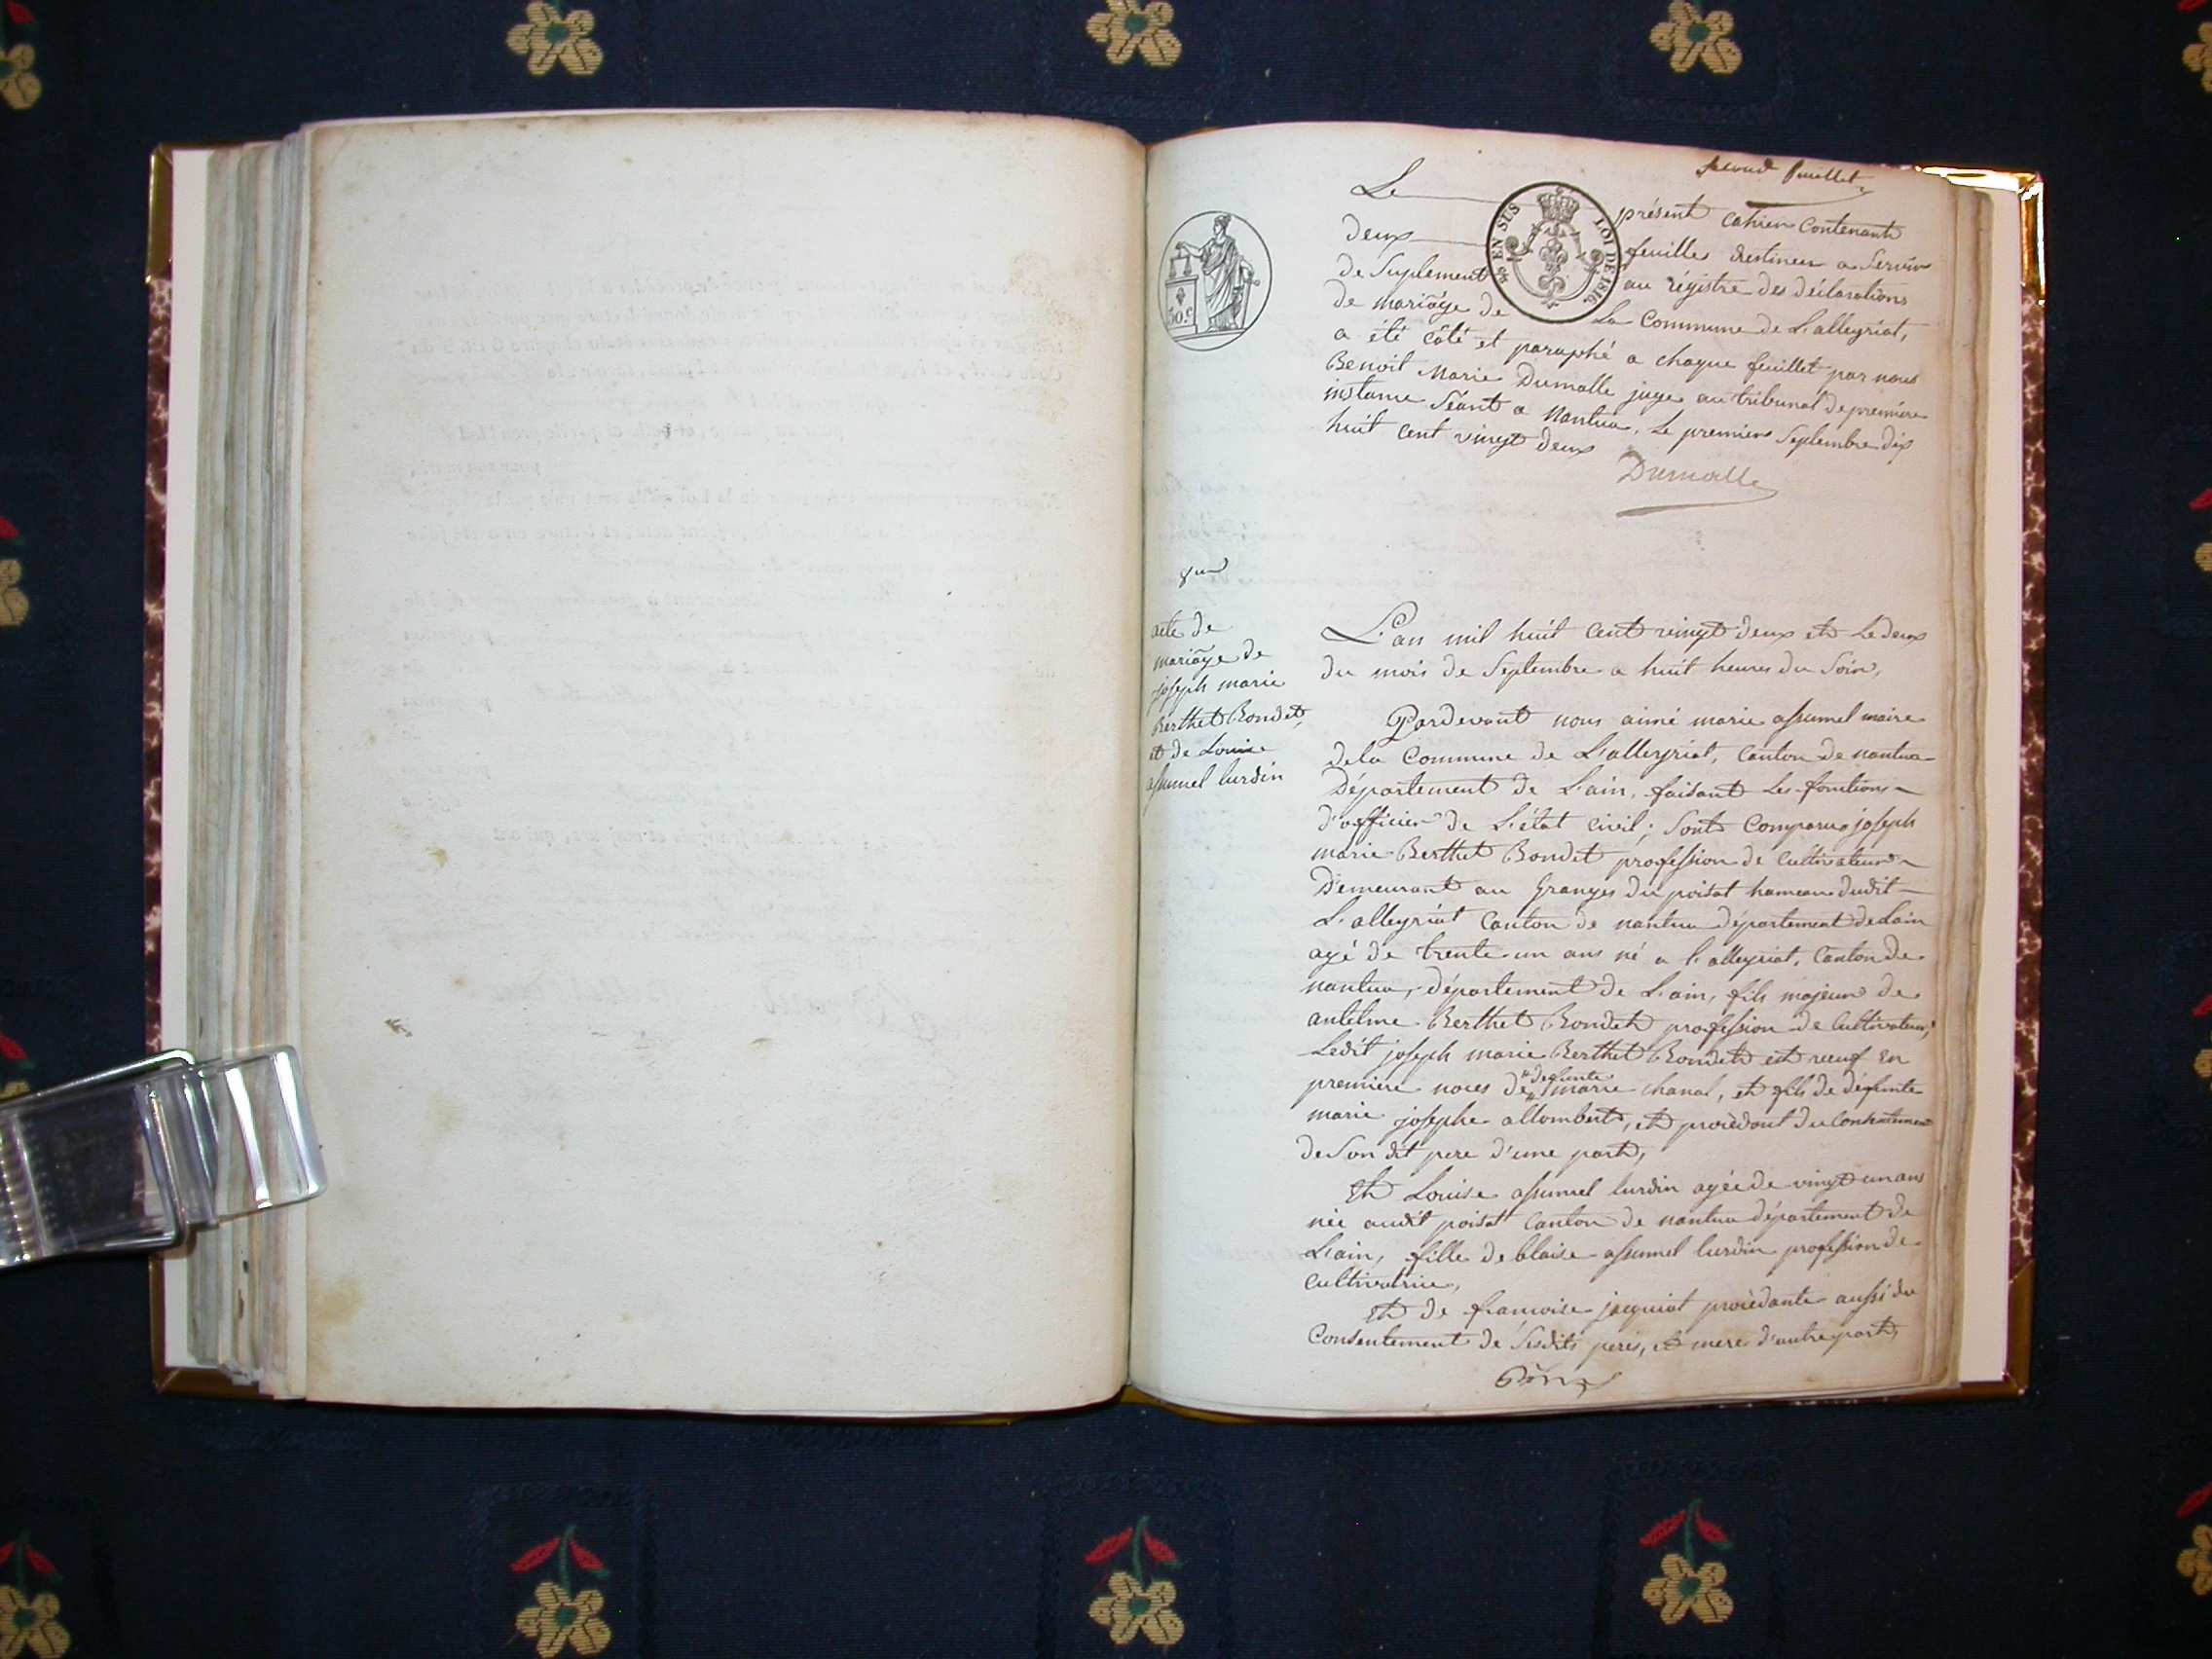 second feuillet
Le présent cahier contenant
deux feuilles destinees a servir
de suplement au régistre des déclarations
de mariãge de La Commune de L'alleyriat,
a été côté et paraphé a chaque feuillet par nous
Benoit Marie Dumalle juge au tribunal de premiere
instance séant a Nantua, Le premier septembre dix
huit cent vingt deux
Dumalle
EN SUS LOI DE 1816
50 c
8me
acte de
mariãge de
joseph marie
Berthet Bondet,
et de Louise
assumel lurdin
L'an mil huit cent vingt deux et Le deux
du mois de septembre a huit heures du soir,
Pardevant nous aimé marie assumel maire
dela Commune de L'alleyriat, canton de nantua
Département de L'ain, faisant Les fonctions
d'officier de L'état civil; sont comparus joseph
marie Berthet Bondet profession de cultivateur
Demeurant au Granges du poisat hameau dudit
L'alleyriat Canton de nantua département de Lain
agé de trente un ans né a l'alleyriat, Canton de
nantua, département de L'ain, fils majeur de
antelme Berthet Bondet profession de cultivateur,
Ledit joseph marie Berthet Bondet est veuf en
premiere noces de defunte marie chanal, et fils de défunte
marie josephe allombert, et procèdant du consentement
de son dit pere d'une part,
Et Louise assumel lurdin agée de vingt un ans
née audit poisat canton de nantua département de
L'ain, fille de blaise assumel lurdin profession de
cultivatrice,
Et de francoise jacquiot procèdante aussi du
consentement de sesdits peres, et mere d'autre part,